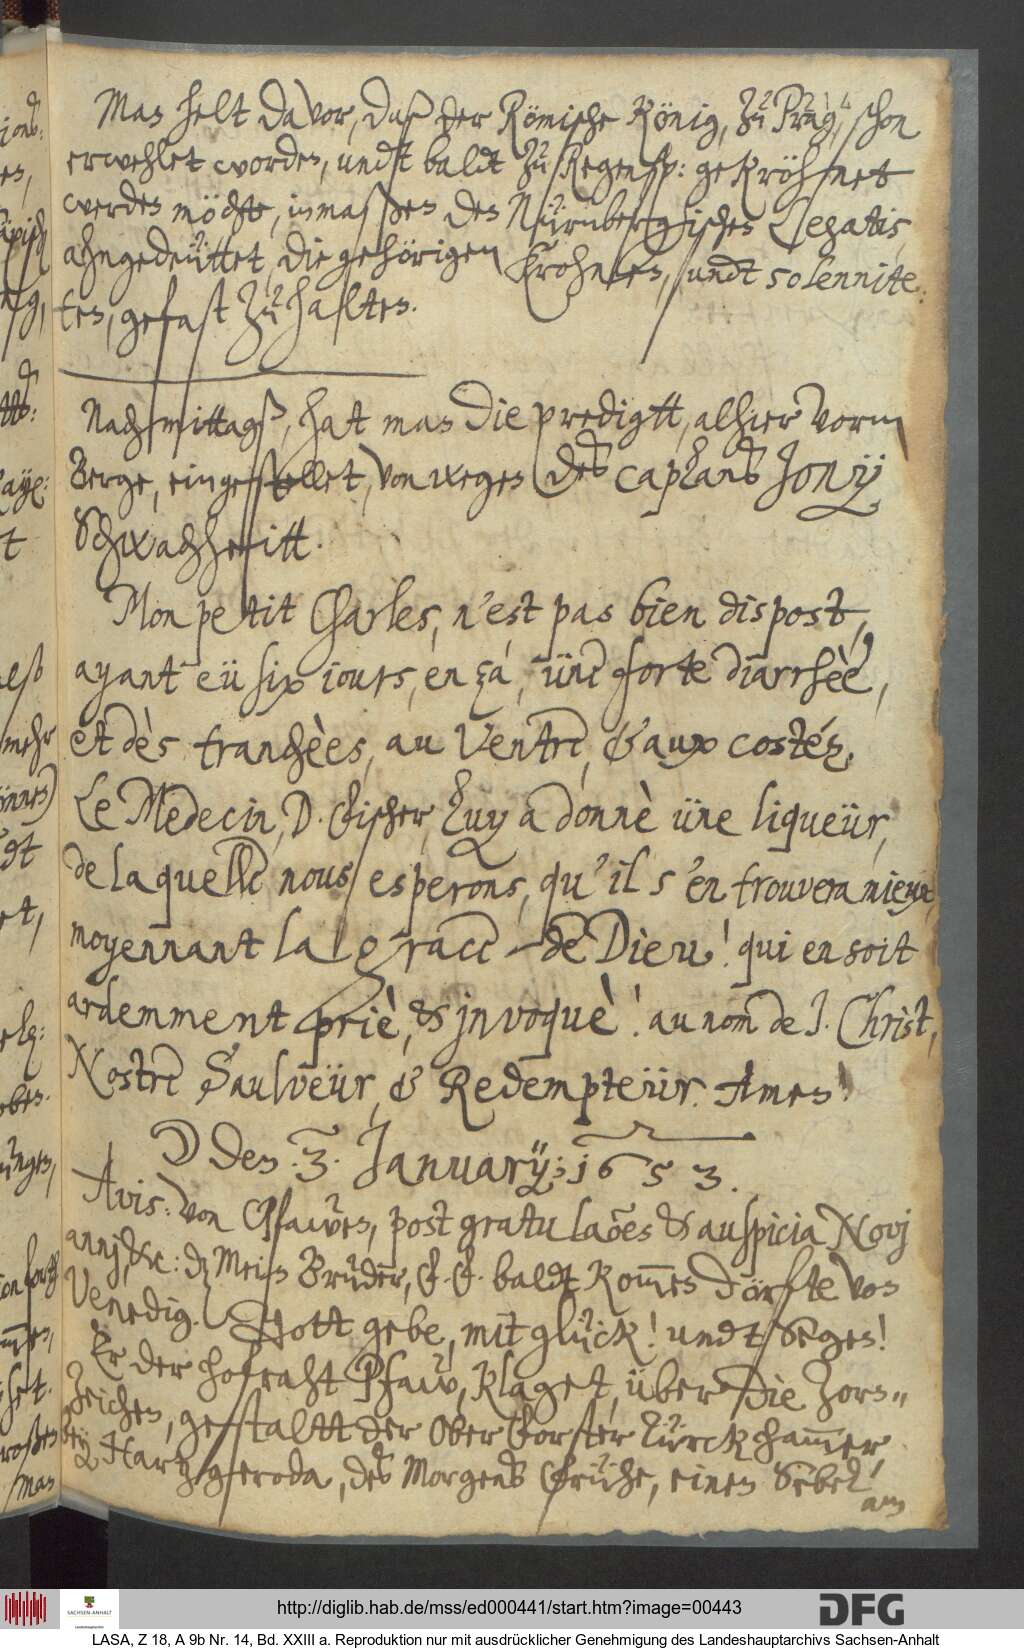 Man helt davor, daß der Römische König, zu Prag, schon
erwehlet worden, undt baldt zu Regensp: gekröhnet
werden möchte, inmaßen den Nürnbergischen Legatis,
ahngedeüttet, die gehörigen Krohnen, undt solennite-
ten, gefast zu halten.
Nachmittagß, hat man die predigtt, alhier vorm
Berge, eingestellet, von wegen des Caplans Jonij
Schwachheitt.
Mon petit Charles, n'est pas bien dispost,
ayant eü six jours, en çá, üne forte diarrhèe,
et dès tranchèes, au Ventre, & aux costéz.
Le Medecin, D. Fischer, luy a donnè üne liqueür,
de laquelle nous esperons, qu'il s'en trouvera mieux,
moyennant la grace de Dieu! qui en soit
ardemment priè, & invoquè! au nom de J. Christ,
Nostre Saulveür, & Redempteür. Amen!
☽ den 3. January: 1653.
Avis: von Pfawen, post gratulaões & auspicia Novj
annj, &c: dz Mein Bruder, F. F. baldt kom̄en dörfte von
Venedig. Gott gebe, mit glück! undt Segen!
Er der hofraht Pfaw, klaget, über die Zorn-
zeichen, gestaltt der OberForster Türckham̄er,
bey Hartzgeroda, des Morgends frühe, einen Sebel
am
214
Man
http://diglib.hab.de/mss/ed000441/start.htm?image=00443
DFG
SACHSEN-ANHALT
LASA, Z 18, A 9b Nr. 14, Bd. XXIII a. Reproduktion nur mit ausdrücklicher Genehmigung des Landeshauptarchivs Sachsen-Anhalt